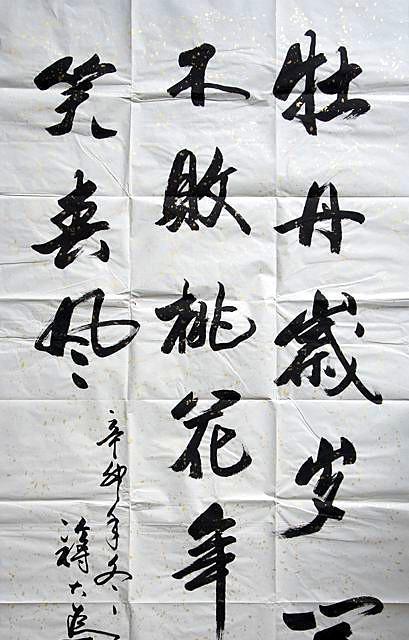 牡丹歲岁
不敗桃花年
笑春风
辛卯年冬